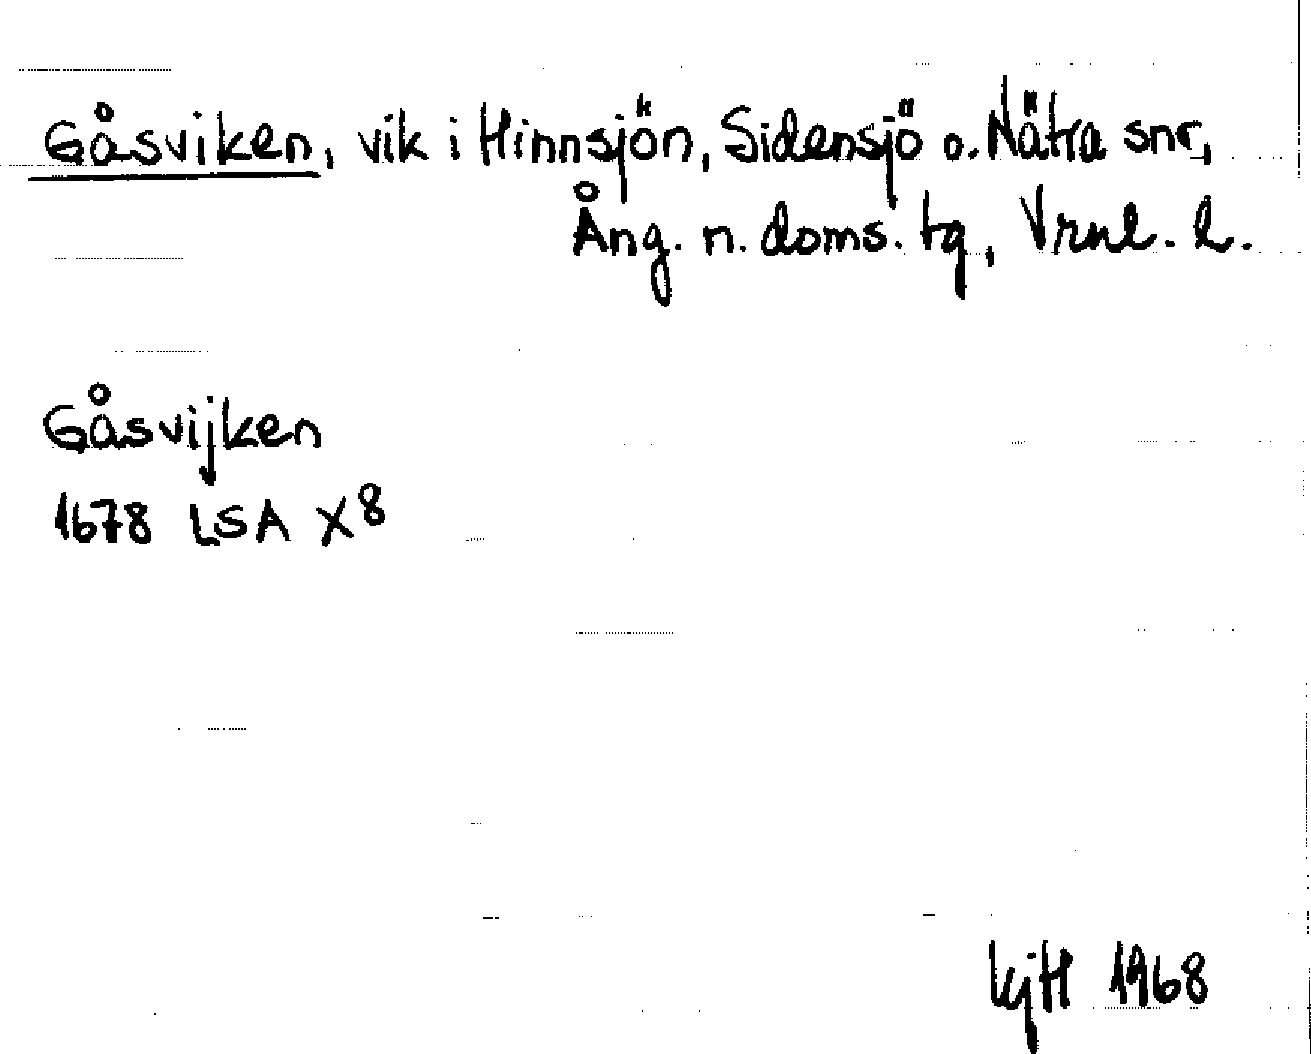 Gåsviken, vik i Hinnsjön, Sidensjö o. Nätra snr,
Ång. n. doms. tg, Vrnl. l.
Gåsvijken
1678 LSA X8
KjH 1968